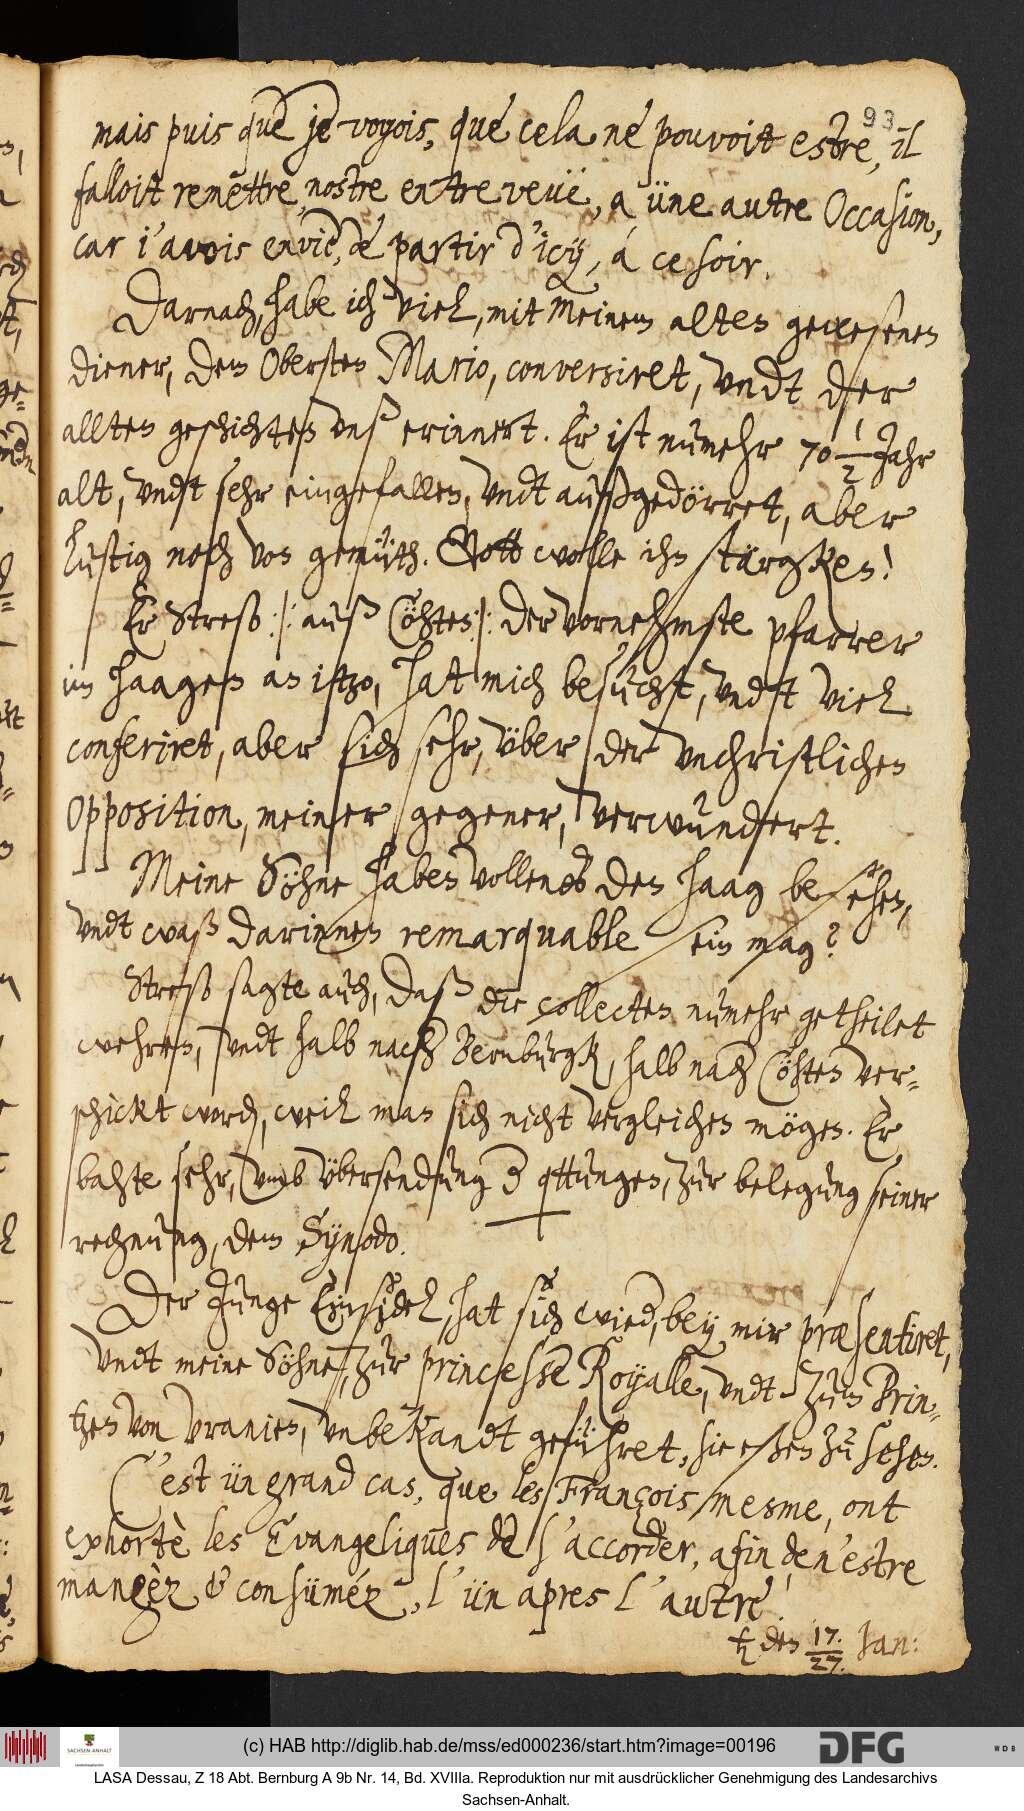 93
mais puis que je voyois, que cela ne pouvoit estre, il
falloit remettre, nostre entreveüe, a üne autre Occasion,
car i'avois envie, de partir d'icÿ, a ce soir.
Darnach, habe ich viel, mit Meinem alten gewesenen
diener, dem Obersten Mario, conversiret, vndt der
allten geschichten vnß erinnert. Er ist nůmehr 70 1/2 Jahr
alt, vndt sehr eingefallen, vndt außgedörret, aber
lustig noch von gemüth. Gott wolle ihn stärgken!
Er Streso :/: auß Cöhten :/: der vornehmste pfarrer
im Haagen an itzo, hat mich besücht, vndt viel
conferiret, aber sich sehr, über der vnchristlichen
Opposition, meiner gegener, verwundert.
Meine Söhne haben vollends den Haag besehen,
vndt waß darinnen remarquable sein mag?
Streso sagte auch, daß die collecten nůmehr getheilet
wehren, vndt halb nach Bernburgk, halb nach Cöhten ver-
schickt word, weil man sich nicht vergleichen mögen. Er
bahte sehr, vmb übersendung der quittungen, zur belegung seiner
rechnung, dem Sÿnodo.
Der Junge Einsidel, hat sich wied, beÿ mir præsentiret,
vndt meine Söhne, zur princesse Royalle, vndt zum Prin-
tzen von Vranien, vnbekandt geführet, sie eßen zu sehen.
C'est ün grand cas, que les François mesme, ont
exhortè les Evangeliques de s'accorder, afin de n'estre
mangèz & consüméz, l'ün apres l'autre.
♄ den 17./27. Jan:
(c) HAB http://diglib.hab.de/mss/ed000236/start.htm?image=00196
SACHSEN-ANHALT
DFG
WDB
LASA Dessau, Z 18 Abt. Bernburg A 9b Nr. 14, Bd. XVIIIa. Reproduktion nur mit ausdrücklicher Genehmigung des Landesarchivs
Sachsen-Anhalt.